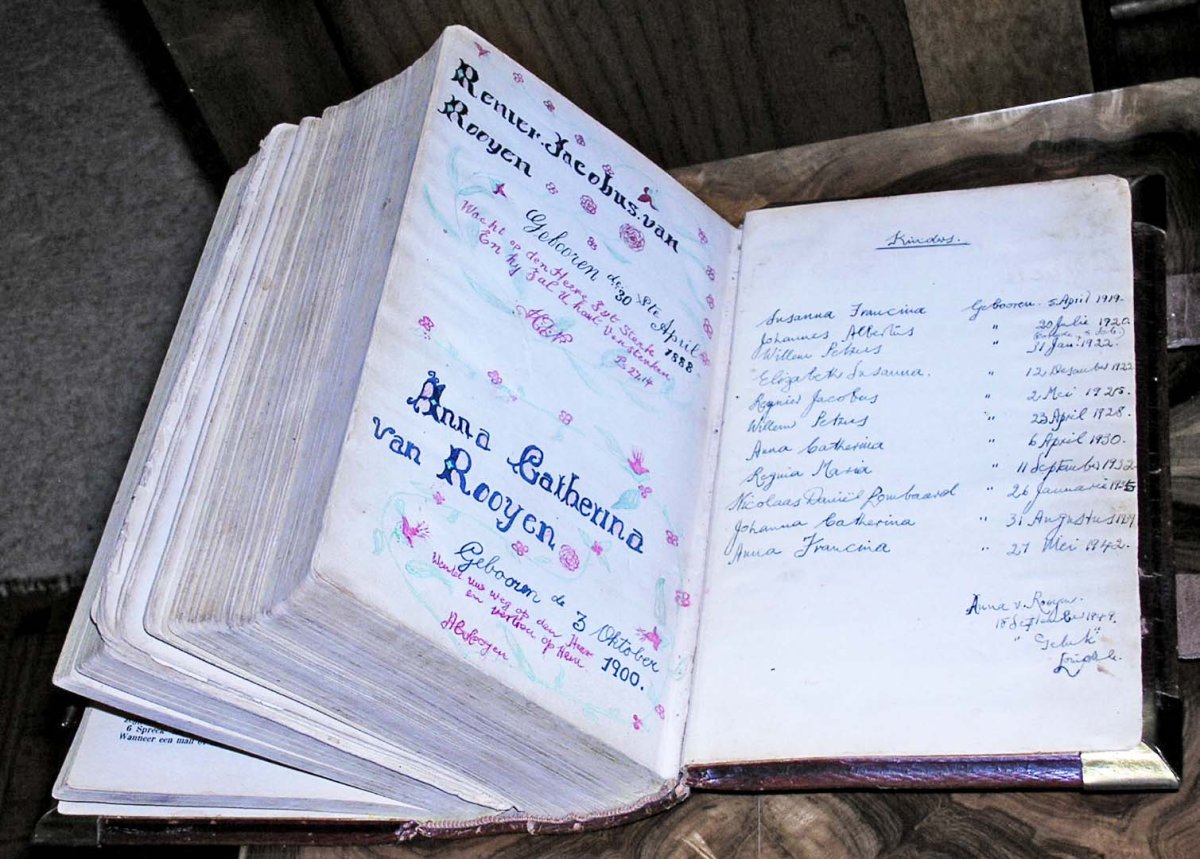 Renier Jacobus van
Rooyen
Gebooren de 30ste April 1888
Wacht op den Heere Zyt Sterk
En hy zal U hart Versterken
Ps 27.14
Anna Catherina
van Rooyen
Gebooren de 3 Oktober
1900.
Wentel uw weg op den Heer
en vertrou op Hem
AC v Rooyen
6 Spreek
Wanneer een man
Kinders.
Susanna Francina Gebooren 5 April 1919.
Johannes Albertus " 20 Julie 1920
Willem Petrus " 31 Jan' 1922.
Elizabeth Susanna. " 12 Desember 1922
Regnier Jacobus " 2 Mei 1925.
Willem Petrus " 23 April 1928.
Anna Catherina " 6 April 1930.
Regnia Maria " 11 September 1932
Nicolaas Daniël Lombaard " 26 Januarie 1935
Johanna Catherina " 31 Augustus
Anna Francina " 27 Mei 1942.
Anna v. Rooyen.
18 September 1949.
"Geluk"